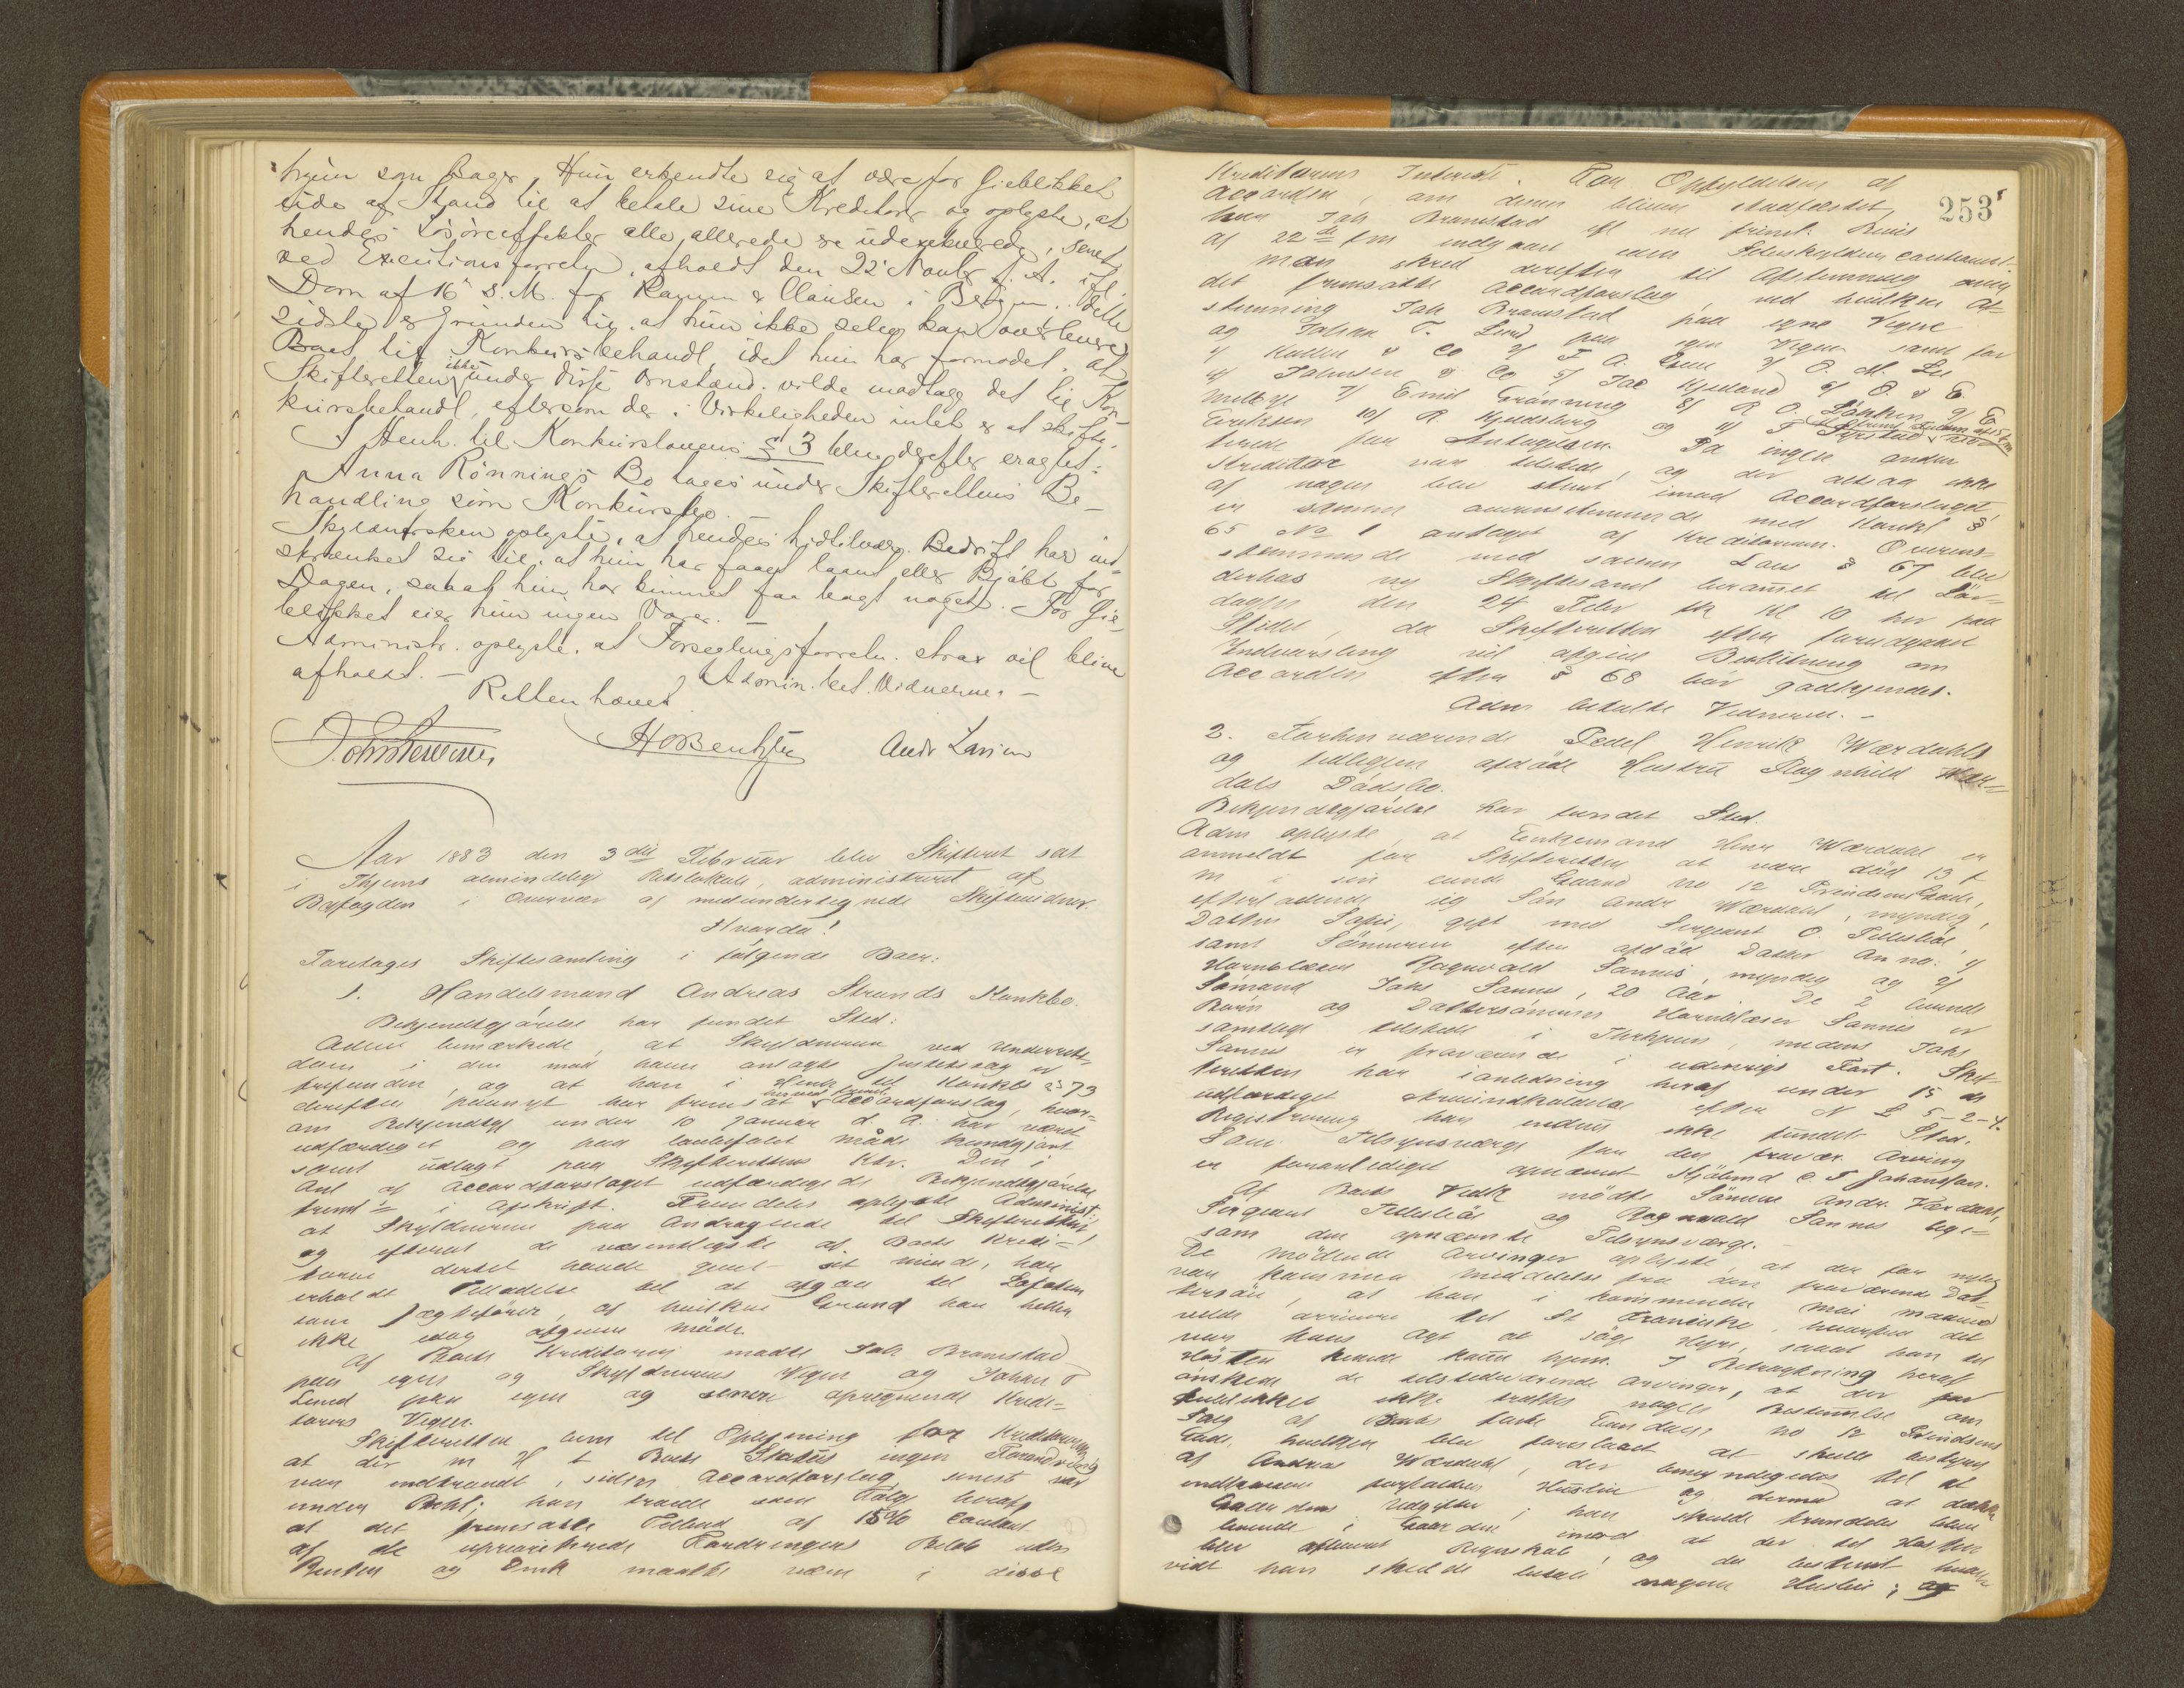 hun som Bager. Hun erkendte sig at være for Øieblikket
ude af Stand til at betale sine Kreditorer og oplyste, at
hendes Løsøreeffekter alle allerede er udexekverede, senest
ved Executionsforretn. afholdt den 22 Novbr f. A. ifl.
Dom af 16 s. M. for Clausen i Bergen. Dette
sidste er Grunden til, at hun ikke selv kan overlevere
Boet til Konkursbehandl, idet hun har formodet, at
Skifteretten ikke under disse Omstænd. vilde modtage det til Kon-
kursbehandl, eftersom der i Virkeligheden intet er at skifte.
I Henh. til Konkurslovens § 3 blev derefter eragtet:
Anna Rønnings Bo tages under Skifterettens Be-
handling som Konkursbo.
Skyldnersken oplyste, at hendes hidtilvær. Bedrift har ind-
skrænket sig til, at hun har faaet laant eller kjøbt for
Dagen, saaat hun har kunnet faa bagt noget. For Øie-
blikket eier hun ingen Varer.
Administr. oplyste, at Forseglingsforretn. strax vil blive
afholdt. - Admin. bet. Vidnerne. -
Retten hævet
HOBentzen Andr Larsen
Aar 1883 den 3die Februar blev Skifteret sat
i Thjems almindelige Retslokale, administreret af
Byfogden i Overvær af medundertegnede Skiftevidner.
Hvorda!
Foretages Skiftesamling i følgende Boer:
1. Handelsmand Andreas Strands Konkbo.
Bekjendtgjørelse har fundet Sted:
Adm bemærkede, at Skyldneren ved Underrets-
dom i den mod ham anlagte Justitssag er
frifunden, og at han i Henh til Konkls § 73
derefter paanyt har fremsat Accordforslag, hvor-
om Bekjendtgj under 10 Januar d. A. har været
udfærdiget og paa lovbefalet Måde kundgjort
samt udlagt paa Skifterettens Ktr. Den i
Anl af Accordforslaget udfærdigede Bekjendtgjørelse
freml i Afskrift. Fremdeles oplyste Administ:
at Skyldneren paa Andragende til Skifteretten
og efterat de væsentligste af Boets Kredi-
torer dertil havde givet sit Minde, har
erholdt Tilladelse til at afgaa til Lofoten
som Jægtefører, af hvilken Grund han heller
ikke idag afgiver Møde.
Af Boets Kreditorer mødte Joh Bramstad
paa egne og Skyldnerens Vegne og Johan F
Lund paa egne og senere opregnede Kredi-
torers Vegne.
Skifteretten kom til Oplysning for Kreditorerne
at der m H t Boets Status ingen Forandring
var indtraadt, siden Accordforslag senest var
under Behl; han troede som Følge heraf
at det fremsatte Tilbud af 15% Contant
af de uprioriterede Fordringers Beløb uden
Renter og Omk maatte være i disse
253
Kreditorers Interesse. For Opfyldelsen af
Accorden, om denne bliver stadfæstet,
har Joh Bramstad efl nu freml. Bevis
af 22de f m indgaaet som Selvskyldnercautionist.
Man skred derefter til Afstemning over
det fremsatte Accordforslag, ved hvilken Af-
stemning Joh Bramstad paa egne Vegne
og Johan F. Lund paa egne Vegne samt for
Johnsen & Co 5/ Jac Kjelland 6/ O. & E.
7/ Emil Grønning 8/ R O. Løkken 9/ E
Eriksen 10/ R. Kjeldsberg og 11/ F
for Antagelsen. Da ingen anden
Kreditor var tilstede, og der altsaa ikke
af nogen blev stemt imod Accordforslaget,
er samme overensstemmende med Konkl §
65 No 1 antaget af Kreditorerne. Overens-
stemmende med samme Lovs § 67 blev
derhos ny Skiftesaml berammet til Lør-
dagen den 24 Febr Kl 10 her paa
Stedet, da Skifteretten efter foreudgaaet
Undersøgelse vil afgive Beslutning om
Accorden efter § 68 bør godkjendes.
Adm betalte Vidnerne. -
2. Forhenværende Pedel Henrik Wærdahls
og tidligere afdøde Hustru Ragnhild Wær-
dals Dødsbo.
Bekjendtgjørelse har fundet Sted.
Adm oplyste, at Enkemand Henr Wærdahl er
anmeldt for Skifteretten at være død 13 f
M i sin eiende Gaard No 12 Prindsens Gade,
efterladende sig Søn Andr Wærdahl, myndig,
Datter Sofie, gift med Sergeant O. Tilleslie,
samt Sønnerne efter afdød Datter Anna: 1/
Hornblæser Ragnvald Sannes, myndig og 2/
Sømand Johs Sannes, 20 Aar. De 2
Børn og Dattersønnen Hornblæser Sannes er
samtlige tilstede i Thrhjem, medens Johs
Sannes er fraværende i udenrigs Fart. Skif-
teretten har i Anledning heraf under 15 ds
udfærdiget Arveindkaldelse efter N L 5-2-4.
Registrering har endnu ikke fundet Sted.
Som Tilsynsværge for den fravær. Arving
er foranlediget opnævnt Hjulmd C. F Johansson.
Af Boets Vedk mødte Sønnen Andr. Værdahl,
Sergeant Tilleslie og Ragnvald Sannes lige-
som den opnævnte Tilsynsværge.
De mødende Arvinger oplyste, at der for nylig
var kommen Meddelelse fra den fraværende Dat-
tersøn, at han i kommende Mai Maaned
vilde arrivere til St Francisko, hvorfra det
var hans Agt at søge Hyre, saaat han til
Høsten kunde kome hjem. I Betragtning heraf
ønskede de tilstedeværende Arvinger, at der for
Øieblikket ikke træffes nogen Bestemelse om
Salg af Boets faste Eiendom No 12 Prindsens
Gade, hvilken blev foreslaaet at skulle bestyres
af Andreas Wærdahl, der bemyndigedes til at
indkassere forfalden Husleie og dermed at dække
Gaardens Udgifter; han skulde fremdeles blive
boende i Gaarden imod at der til Høsten
blev aflevert Regnskab, og da bestemt hvor
vidt han skulde betale nogen Husleie; og